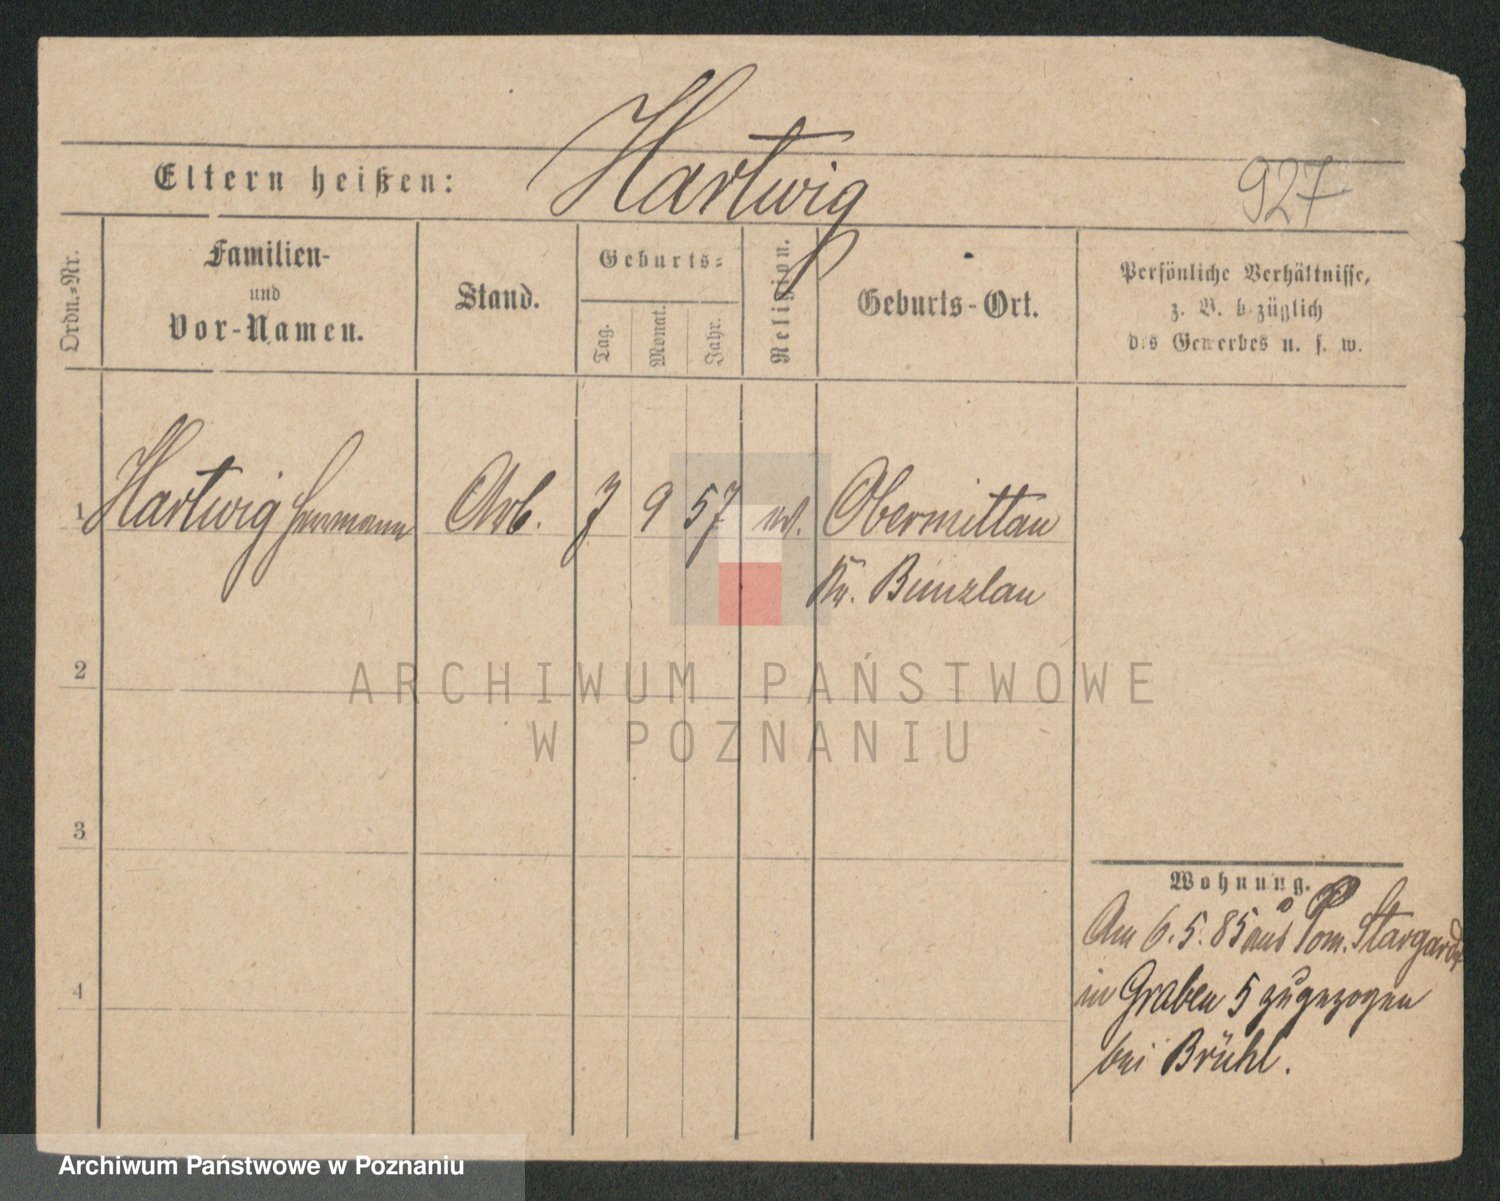 Hartwig
Eltern heißen:
927
Ordn.-Nr.
Familien-
und
Vor-Namen.
Stand.
Geburts-
Tag.
Monat.
Jahr.
Religion.
Geburts-Ort.
Persönliche Verhältnisse,
z. B. bezüglich
des Gewerbes u. s. w.
1 Hartwig Herrmann Arb. 7 9 57 ev. Obermittlau
Kr. Bunzlau
2
3
4
ARCHIWUM PAŃSTWOWE
W POZNANIU
Wohnung.
Am 6.5.85 aus Pom. Stargard
in Graben 5 zugezogen
bei Brühl.
Archiwum Państwowe w Poznaniu